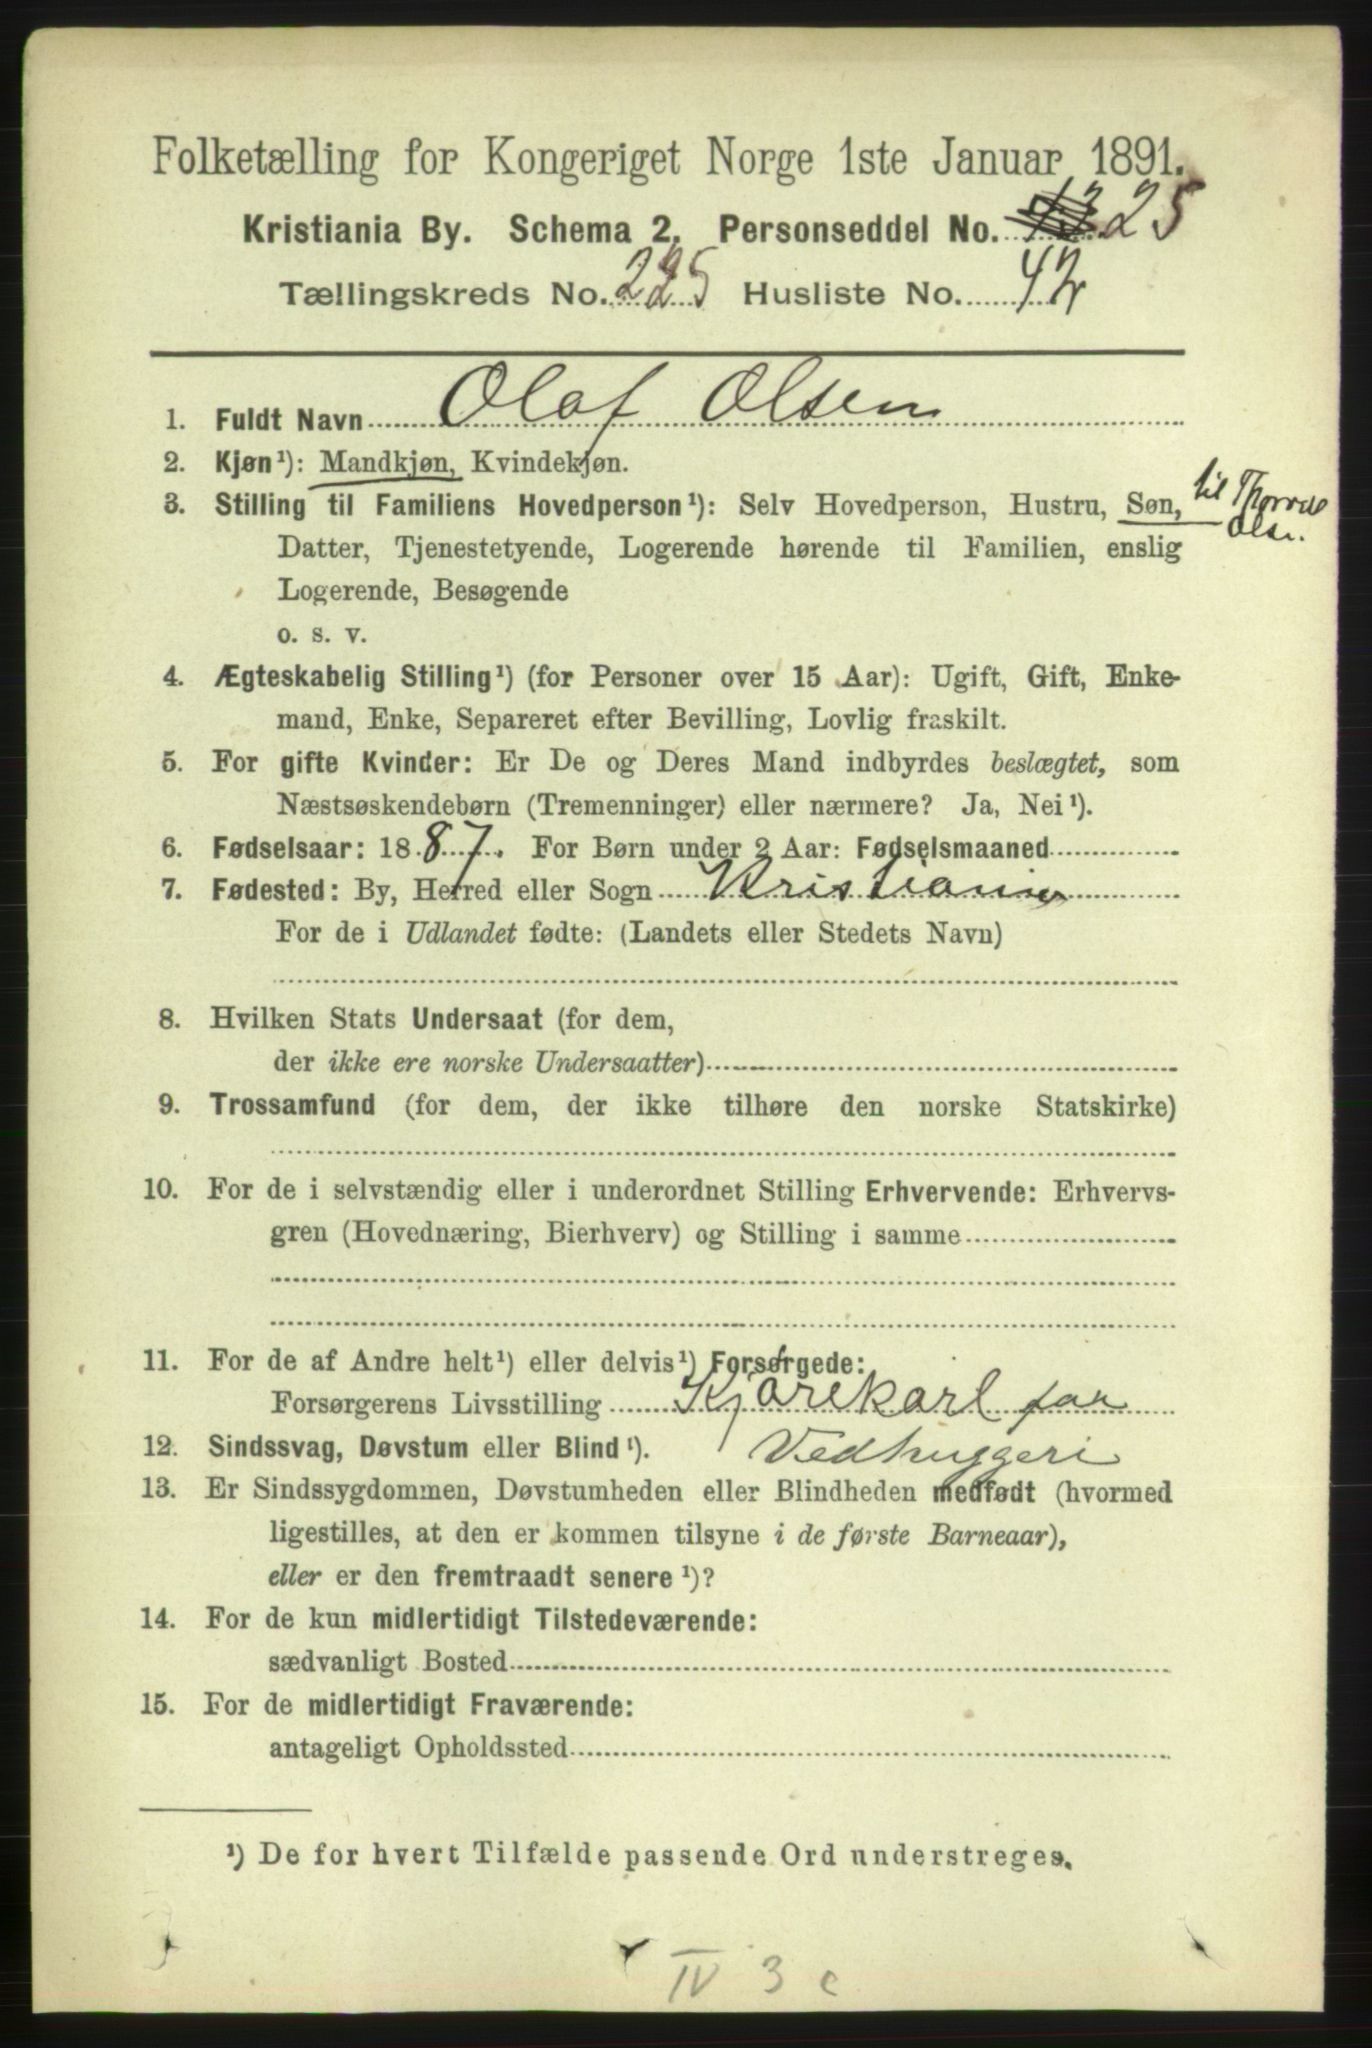 Folketælling for Kongeriget Norge 1ste Januar 1891.
Kristiania By. Schema 2. Personseddel No. 25
Tællingskreds No. 225 Husliste No. 42
1. Fuldt Navn Olaf Olsen
2. Kjøn¹): Mandkjøn, Kvindekjøn.
3. Stilling til Familiens Hovedperson¹): Selv Hovedperson, Hustru, Søn, til Thorval Olsen.
Datter, Tjenestetyende, Logerende hørende til Familien, enslig
Logerende, Besøgende
o. s. v.
4. Ægteskabelig Stilling¹) (for Personer over 15 Aar): Ugift, Gift, Enke-
mand, Enke, Separeret efter Bevilling, Lovlig fraskilt.
5. For gifte Kvinder: Er De og Deres Mand indbyrdes beslægtet, som
Næstsøskendebørn (Tremenninger) eller nærmere? Ja, Nei¹).
6. Fødselsaar: 1887. For Børn under 2 Aar: Fødselsmaaned
7. Fødested: By, Herred eller Sogn Kristiania
For de i Udlandet fødte: (Landets eller Stedets Navn)
8. Hvilken Stats Undersaat (for dem,
der ikke ere norske Undersaatter)
9. Trossamfund (for dem, der ikke tilhøre den norske Statskirke)
10. For de i selvstændig eller i underordnet Stilling Erhvervende: Erhvervs-
gren (Hovednæring, Bierhverv) og Stilling i samme
11. For de af Andre helt¹) eller delvis¹) Forsørgede:
Forsørgerens Livsstilling Kjørekarl paa
12. Sindssvag, Døvstum eller Blind¹). Vedhuggeri
13. Er Sindssygdommen, Døvstumheden eller Blindheden medfødt (hvormed
ligestilles, at den er kommen tilsyne i de første Barneaar),
eller er den fremtraadt senere¹)?
14. For de kun midlertidigt Tilstedeværende:
sædvanligt Bosted
15. For de midlertidigt Fraværende:
antageligt Opholdssted
¹) De for hvert Tilfælde passende Ord understreges.
IV 3 c